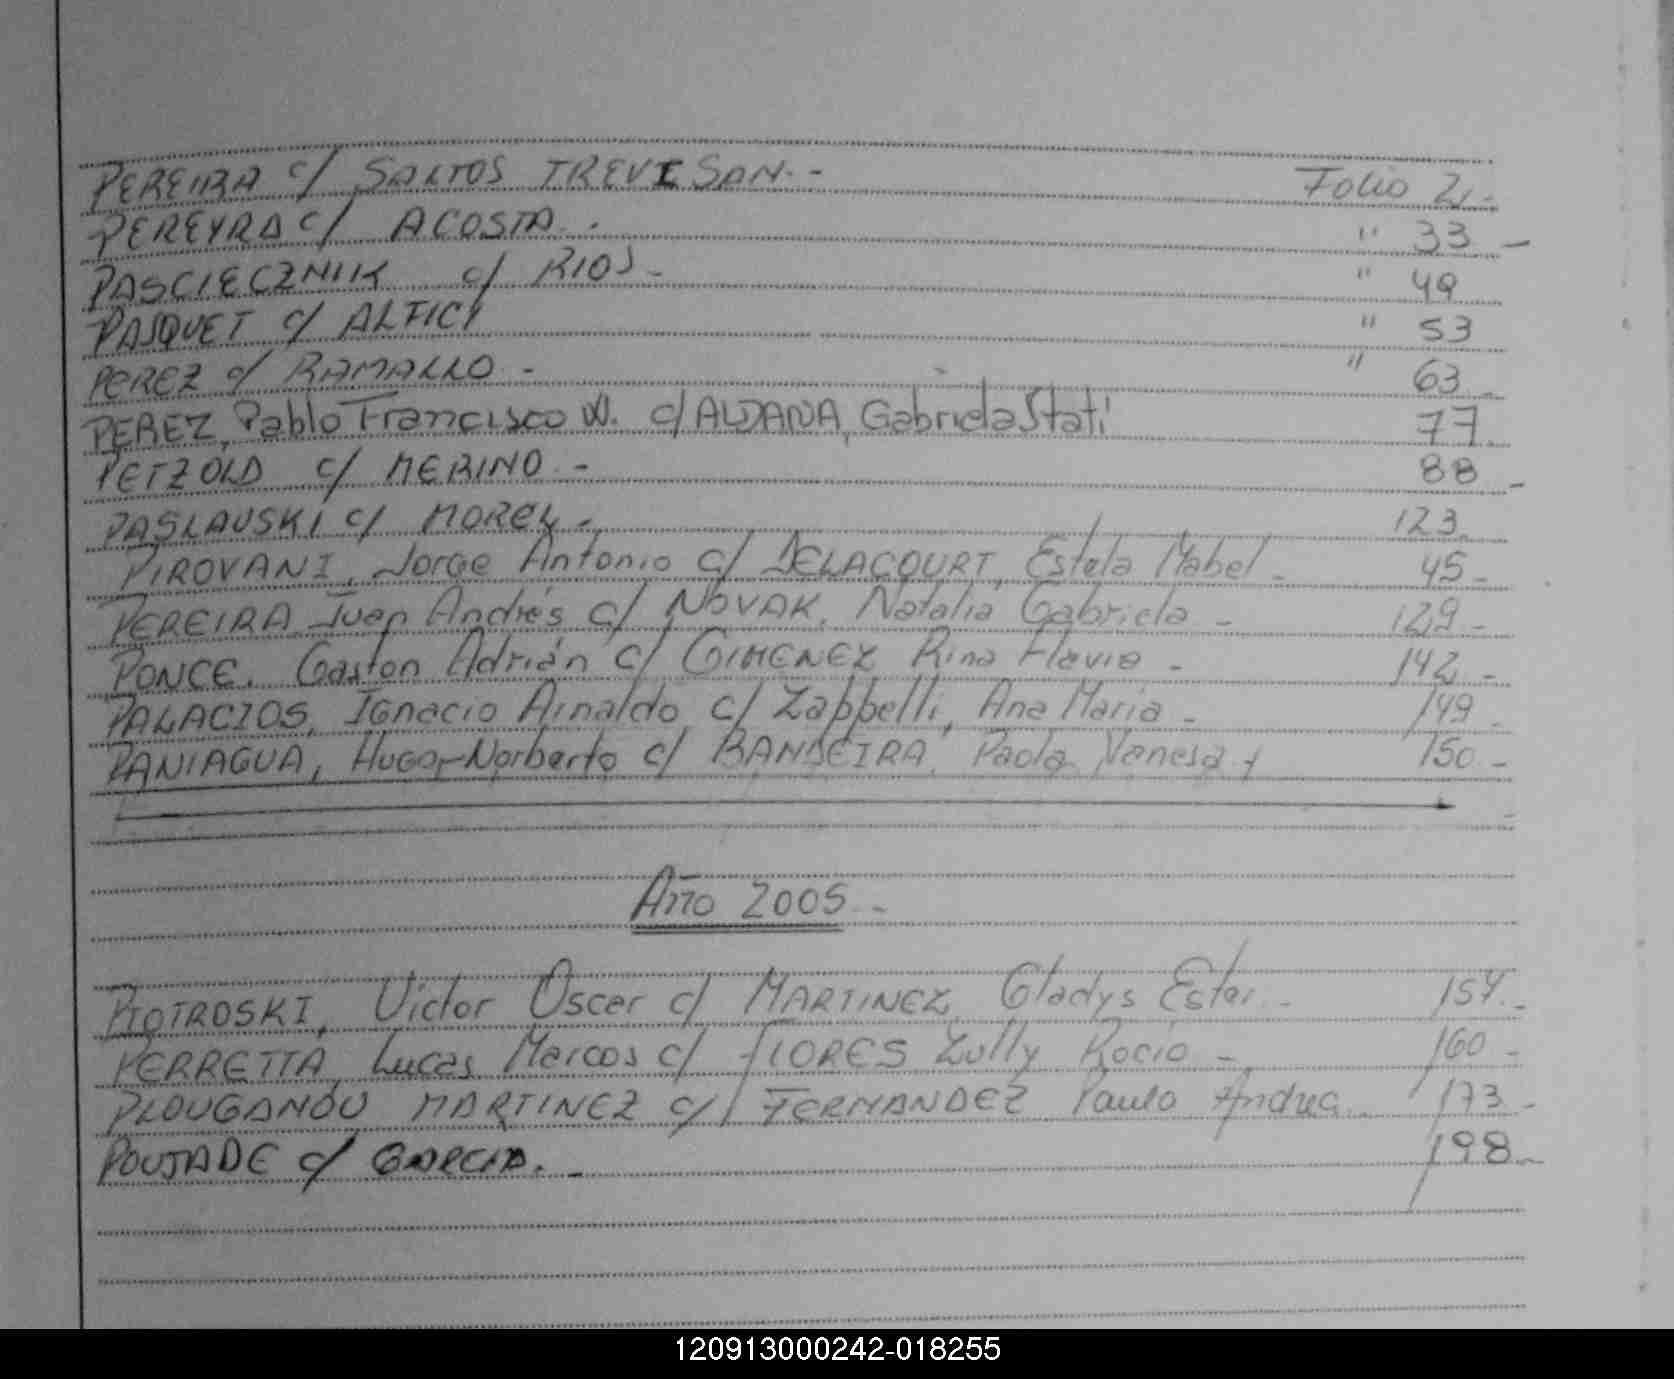 PEREIRA c/ SANTOS TREVISAN.- Folio 2.-
PEREYRA c/ ACOSTA.- " 33 -
PASCIECZNIK c/ RIOS - " 49
PASQUET c/ ALFICI " 53
PEREZ c/ RAMALLO - " 63 -
PEREZ, Pablo Francisco W. c/ ALDANA, Gabriela Stati 77
PETZOLD c/ MERINO - 88 -
PASLAUSKI c/ MOREL - 123
PIROVANI, Jorge Antonio c/ DELACOURT, Estela Mabel - 45 -
PEREIRA Juan Andrés c/ NOVAK, Natalia Gabriela - 129 -
PONCE, Gaston Adrián c/ GIMENEZ Rina Flavia - 142 -
PALACIOS, Ignacio Arnaldo c/ Zappelli, Ana Maria - 149 -
PANIAGUA, Hugo Norberto c/ BANDEIRA, Paola Vanesa 150 -
Año 2005.-
PIOTROSKI, Victor Oscar c/ MARTINEZ, Gladys Ester.- 154.-
PERRETTA, Lucas Marcos c/ FLORES Zully Rocio - 160 -
PLOUGANOU MARTINEZ c/ FERNANDEZ Paula Andrea 173 -
POUJADE c/ GARCIA.- 198.-
120913000242-018255